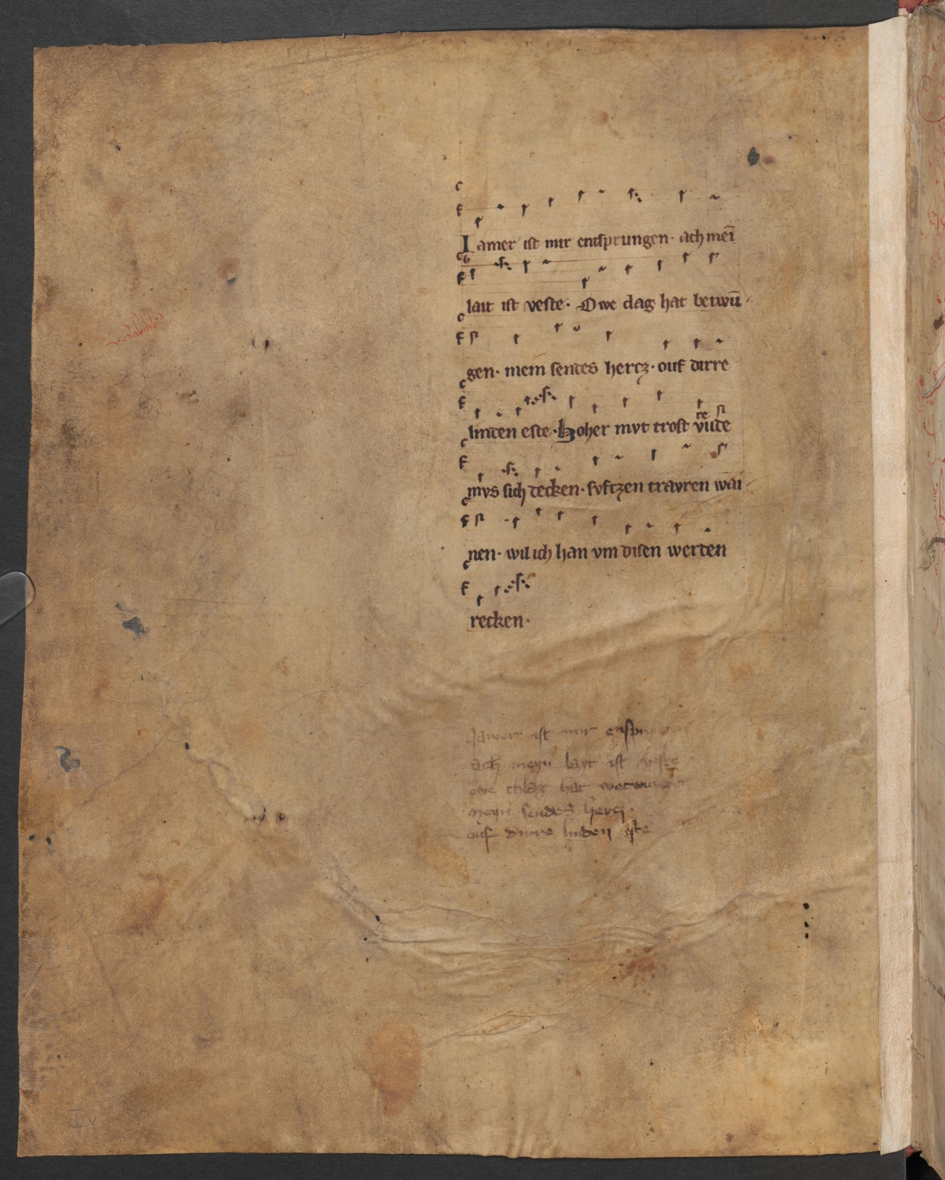 Iamer ist mir entsprungen · ach mei̅
lait ist veste · Owe dag hat betwu̅
gen · mein sendes hercz · ouf dirre
linden este · Hoher mvt trost vn̅de
mvs sich decken · svftzen trayren wai
nen · wil ich han vm disen werden
recken ·
Jamer ist mir
ach meyn layt ist veste
owe chlag hat
meyn sendes hercz ·
auf dirre linden este